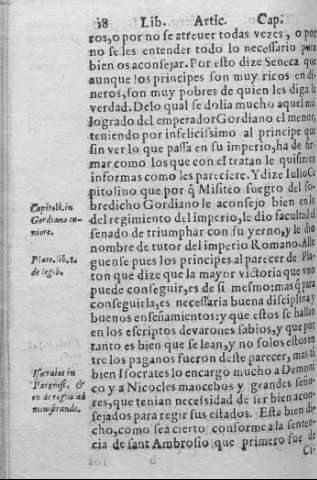 18 Lib. Artic. Cap.
ros, o por no se atreuer todas vezes, o por
no se les entender todo lo necessario para
bien os aconsejar. Por esto dize Seneca que
aunque los principes son muy ricos en di
neros, son muy pobres de quien les diga la
verdad. Delo qual se dolia mucho aquel ma
logrado del emperador Gordiano el menor,
teniendo por infelicissimo al principe que
sin ver lo que passa en su imperio, ha de fir
mar como los que con el tratan le quisieren
informas como les pareciere. Y dize Iulio Ca
pitolino que por q̃ Misiteo suegro del so-
bredicho Gordiano le aconsejo bien en lo
del regimiento del imperio, le dio facultad el
senado de triumphar con su yerno, y le dio
nombre de tutor del imperio Romano. Alle
guense pues los principes al parecer de Pla-
ton que dize que la mayor victoria que vno
puede conseguir, es de si mesmo: mas q̃ para
conseguirla, es necessaria buena disciplina y
buenos enseñamientos: y que estos se hallan
en los escriptos devarones sabios, y que por
tanto es bien que se lean, y no solos estos en
tre los paganos fueron deste parecer, mas tã
bien Isocrates lo encargo mucho a Demoni
co y a Nicocles mancebos y grandes seño-
res, que tenian necessidad de ser bien acon-
sejados para regir sus estados. Esta bien di-
cho, como sea cierto conforme a la senten-
cia de sant Ambrosio que primero fue de
Ci-
Capitoli. in
Gordiano iu-
niore.
Plato. lib. 1.
de legib.
Isocrates in
Parænesi, &
in de regno ad
ministrando.